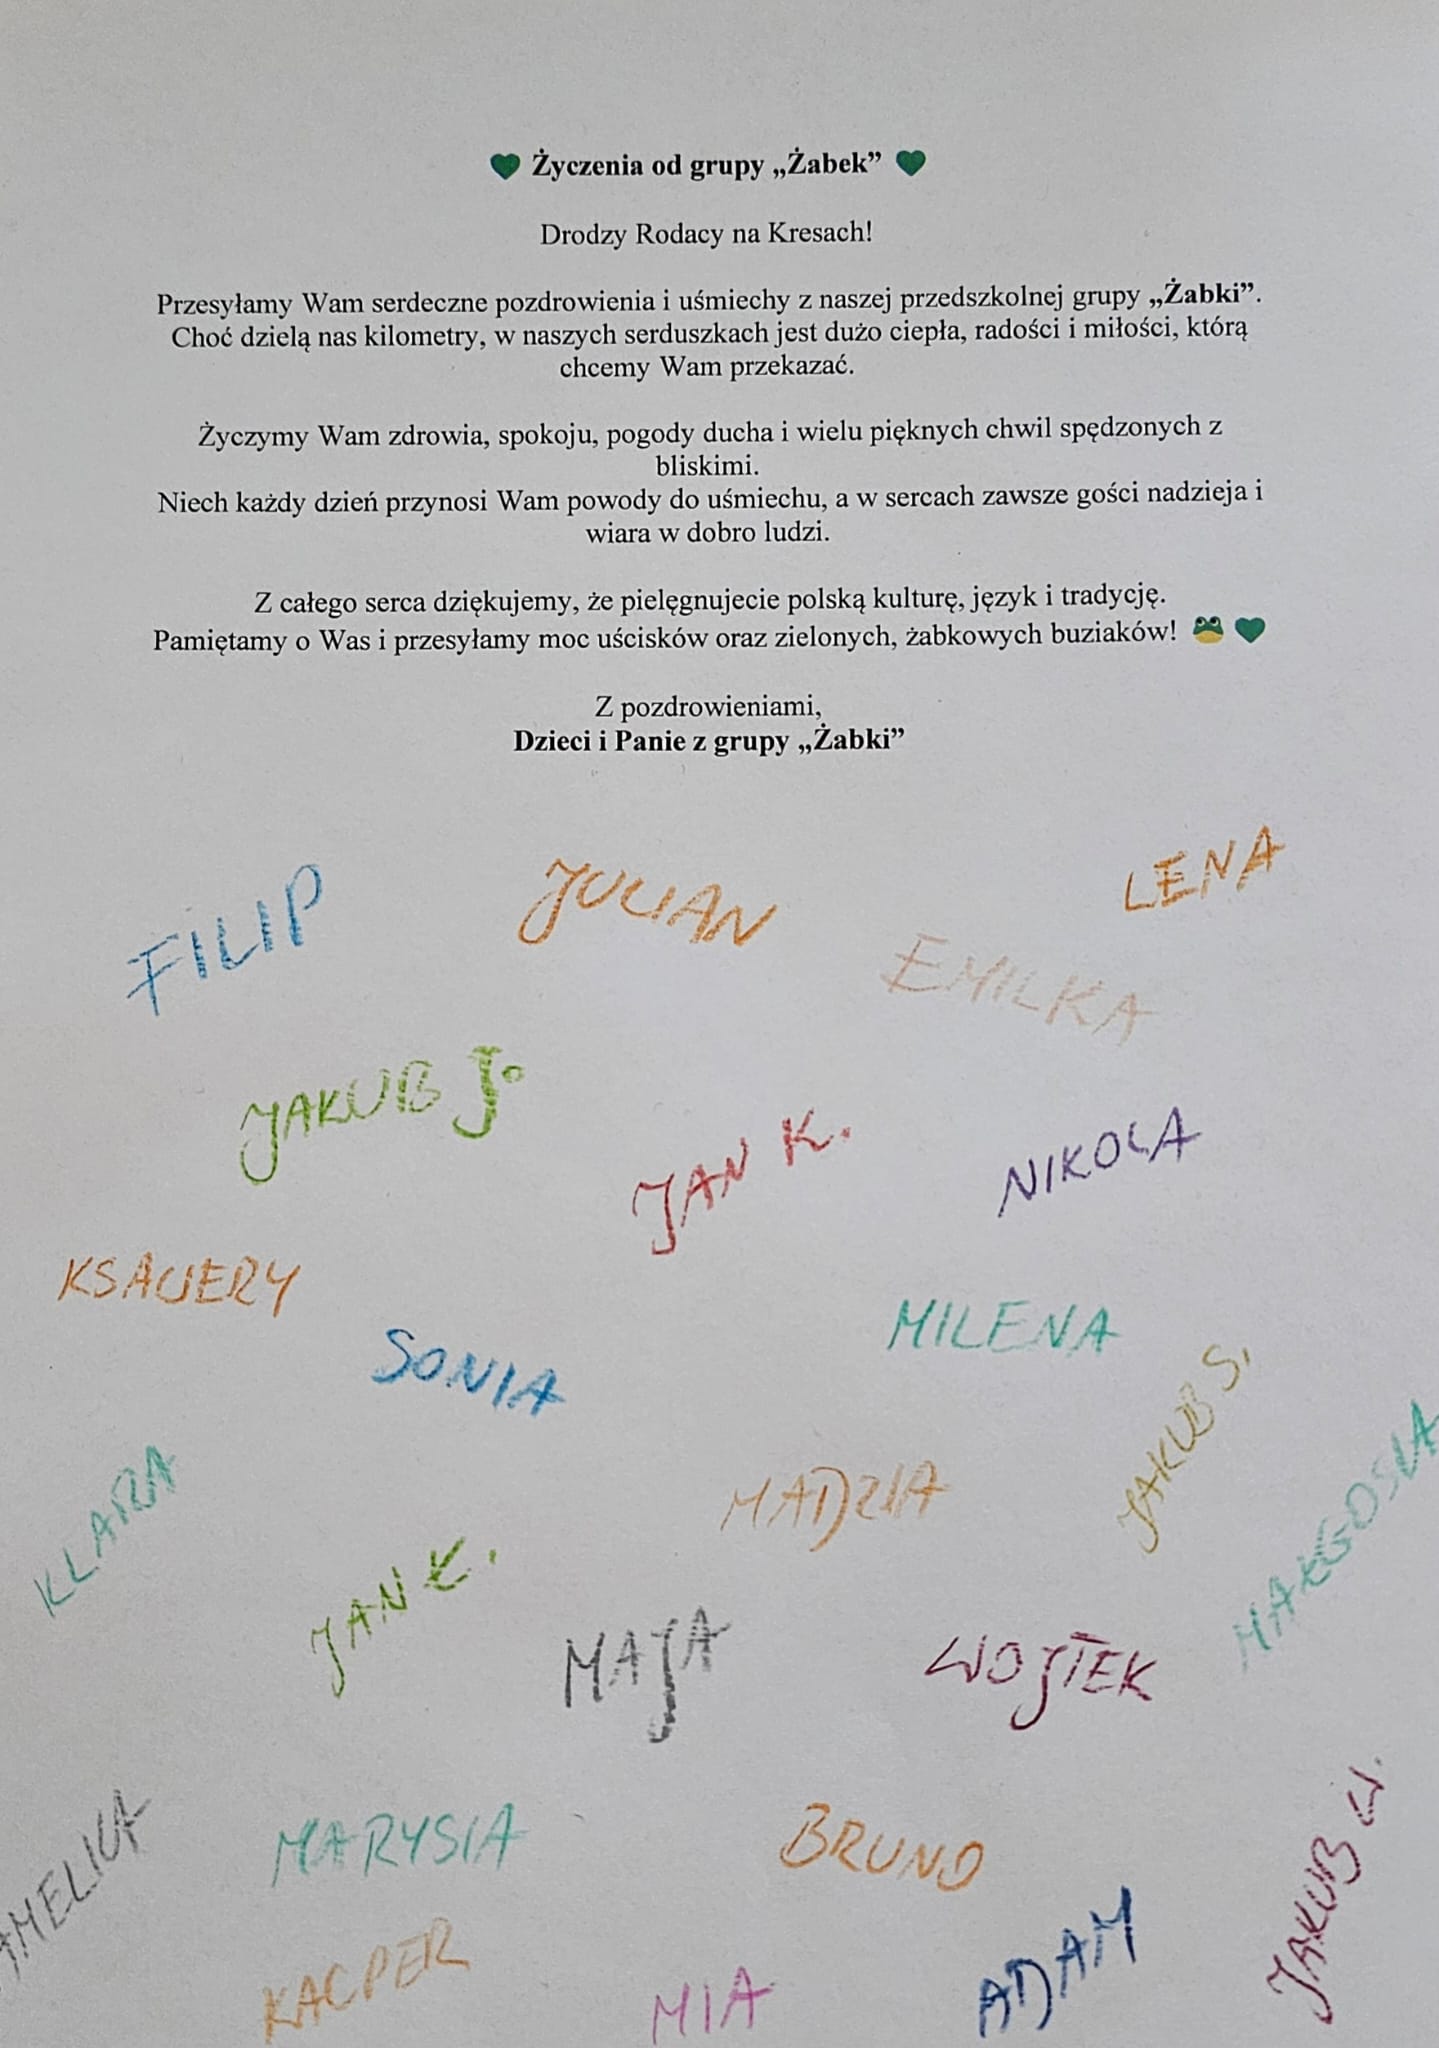 💚 Życzenia od grupy „Żabek” 💚
Drodzy Rodacy na Kresach!
Przesyłamy Wam serdeczne pozdrowienia i uśmiechy z naszej przedszkolnej grupy „Żabki”.
Choć dzielą nas kilometry, w naszych serduszkach jest dużo ciepła, radości i miłości, którą
chcemy Wam przekazać.
Życzymy Wam zdrowia, spokoju, pogody ducha i wielu pięknych chwil spędzonych z
bliskimi.
Niech każdy dzień przynosi Wam powody do uśmiechu, a w sercach zawsze gości nadzieja i
wiara w dobro ludzi.
Z całego serca dziękujemy, że pielęgnujecie polską kulturę, język i tradycję.
Pamiętamy o Was i przesyłamy moc uścisków oraz zielonych, żabkowych buziaków! 🐸 💚
Z pozdrowieniami,
Dzieci i Panie z grupy „Żabki”
FILIP
JULIAN
LENA
EMILKA
JAKUB J.
JAN K.
NIKOLA
KSAWERY
SONIA
MILENA
JAKUB S.
KLARA
MADZIA
MAŁGOSIA
JAN Ł.
MAJA
WOJTEK
AMELIA
MARYSIA
BRUNO
JAKUB W.
KACPER
MIA
ADAM